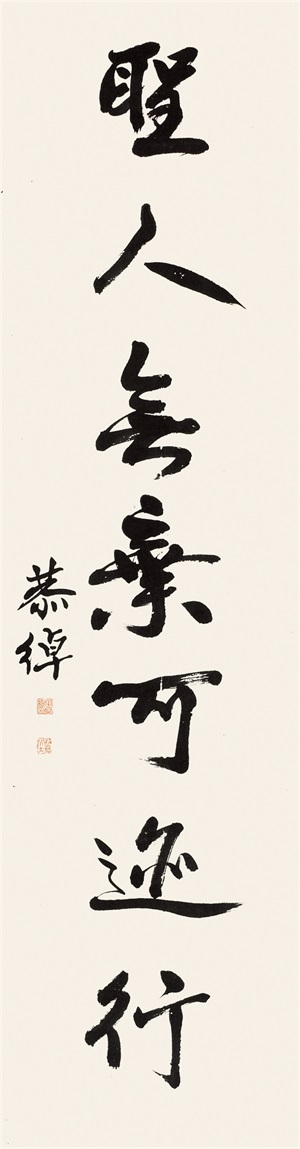 聖人無棄可迹行
恭綽